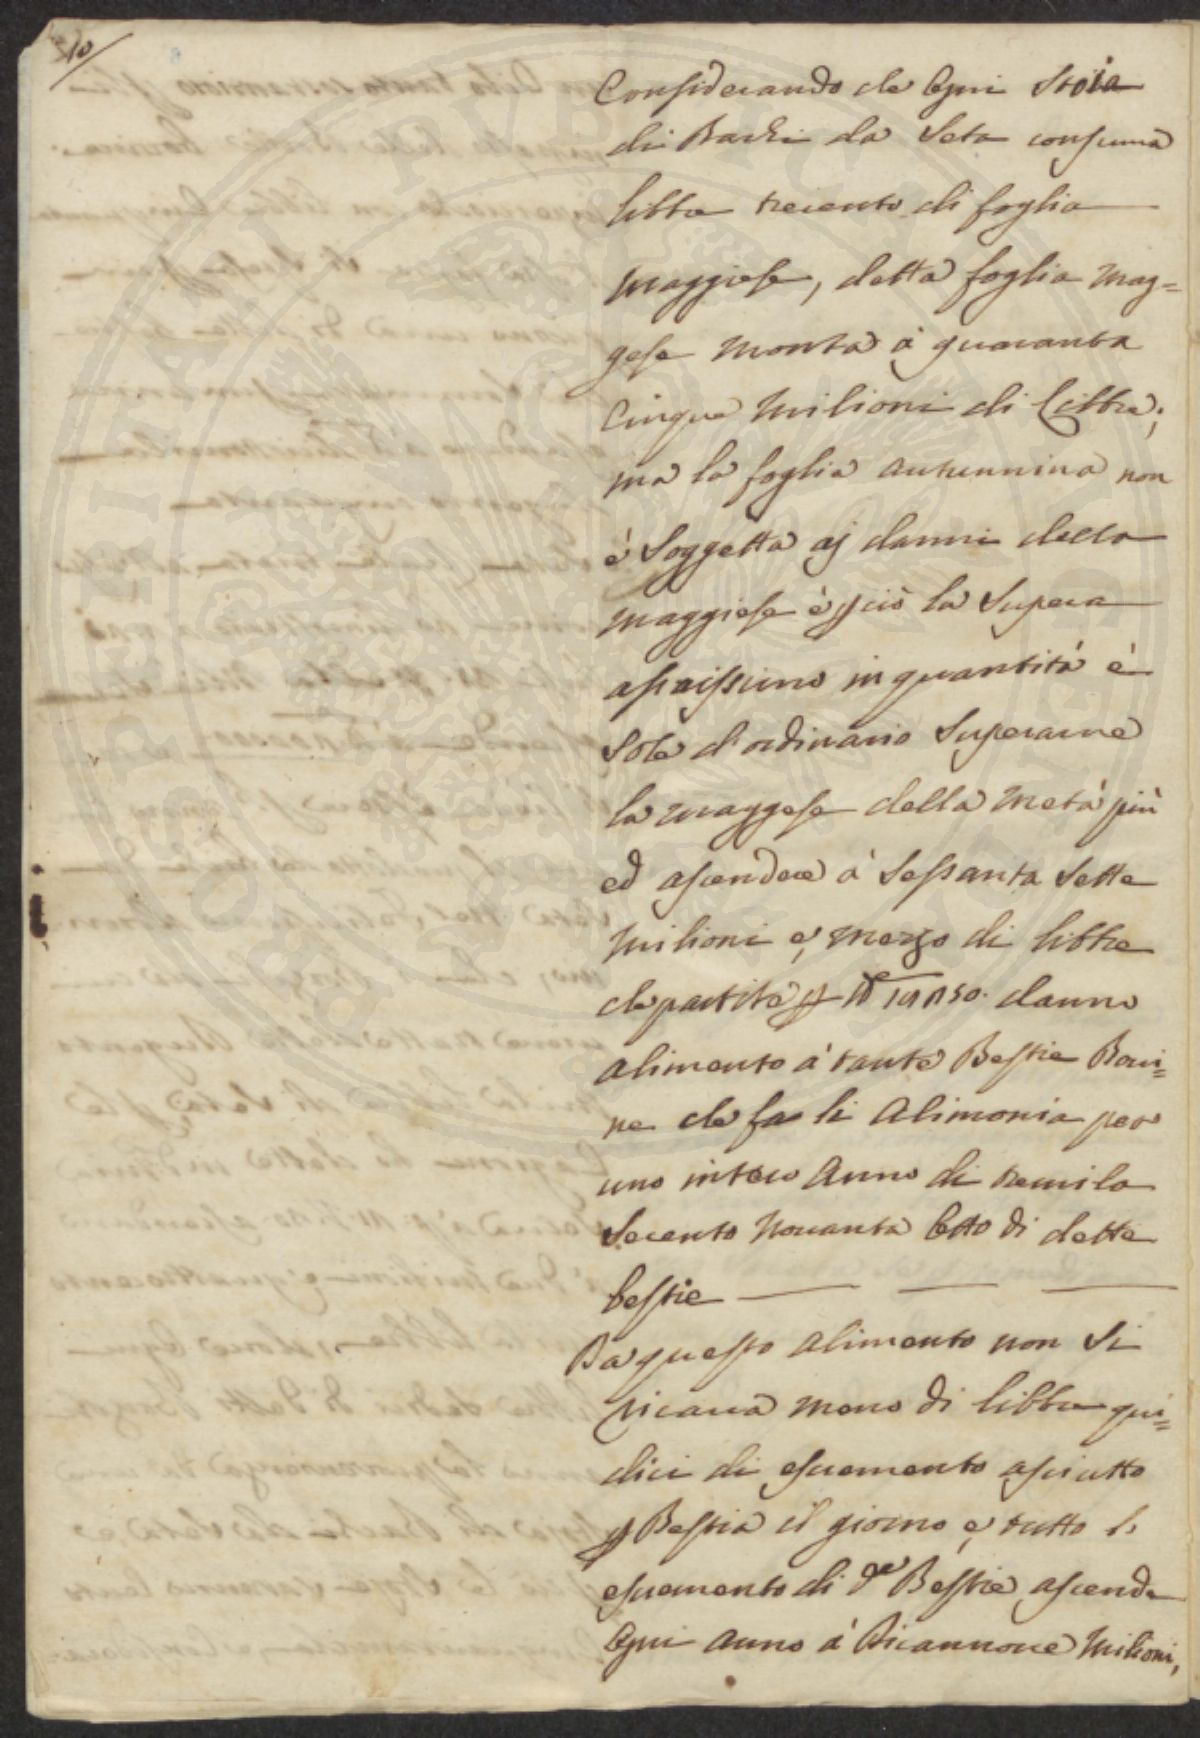 10
Considerando che Ogni Stoia
di Bachi da Seta consuma
libbre trecento di foglia
maggiese, detta foglia mag=
gese monta à quaranta
Cinque Milioni di Libbre;
ma la foglia autunnina non
è Soggetta aj danni della
maggiese è pciò la Supera
assaissimo in quantità è
Sole d'ordinario Superarne
la maggese della metà più
ed ascendere à Sessanta Sette
milioni e, mezzo di libbre
che partite p danno
alimento à tante Bestie Bovi=
ne che fa li Alimonia per
uno intero Anno di tremila
Secento Novanta Otto di dette
bestie
Da questo alimento non Si
ricava meno di libbre qui=
dici di escremento asciutto
p Bestia il giorno e, tutto l'
escremento di de Bestie, ascende
Ogni anno à Dicannove Milioni,